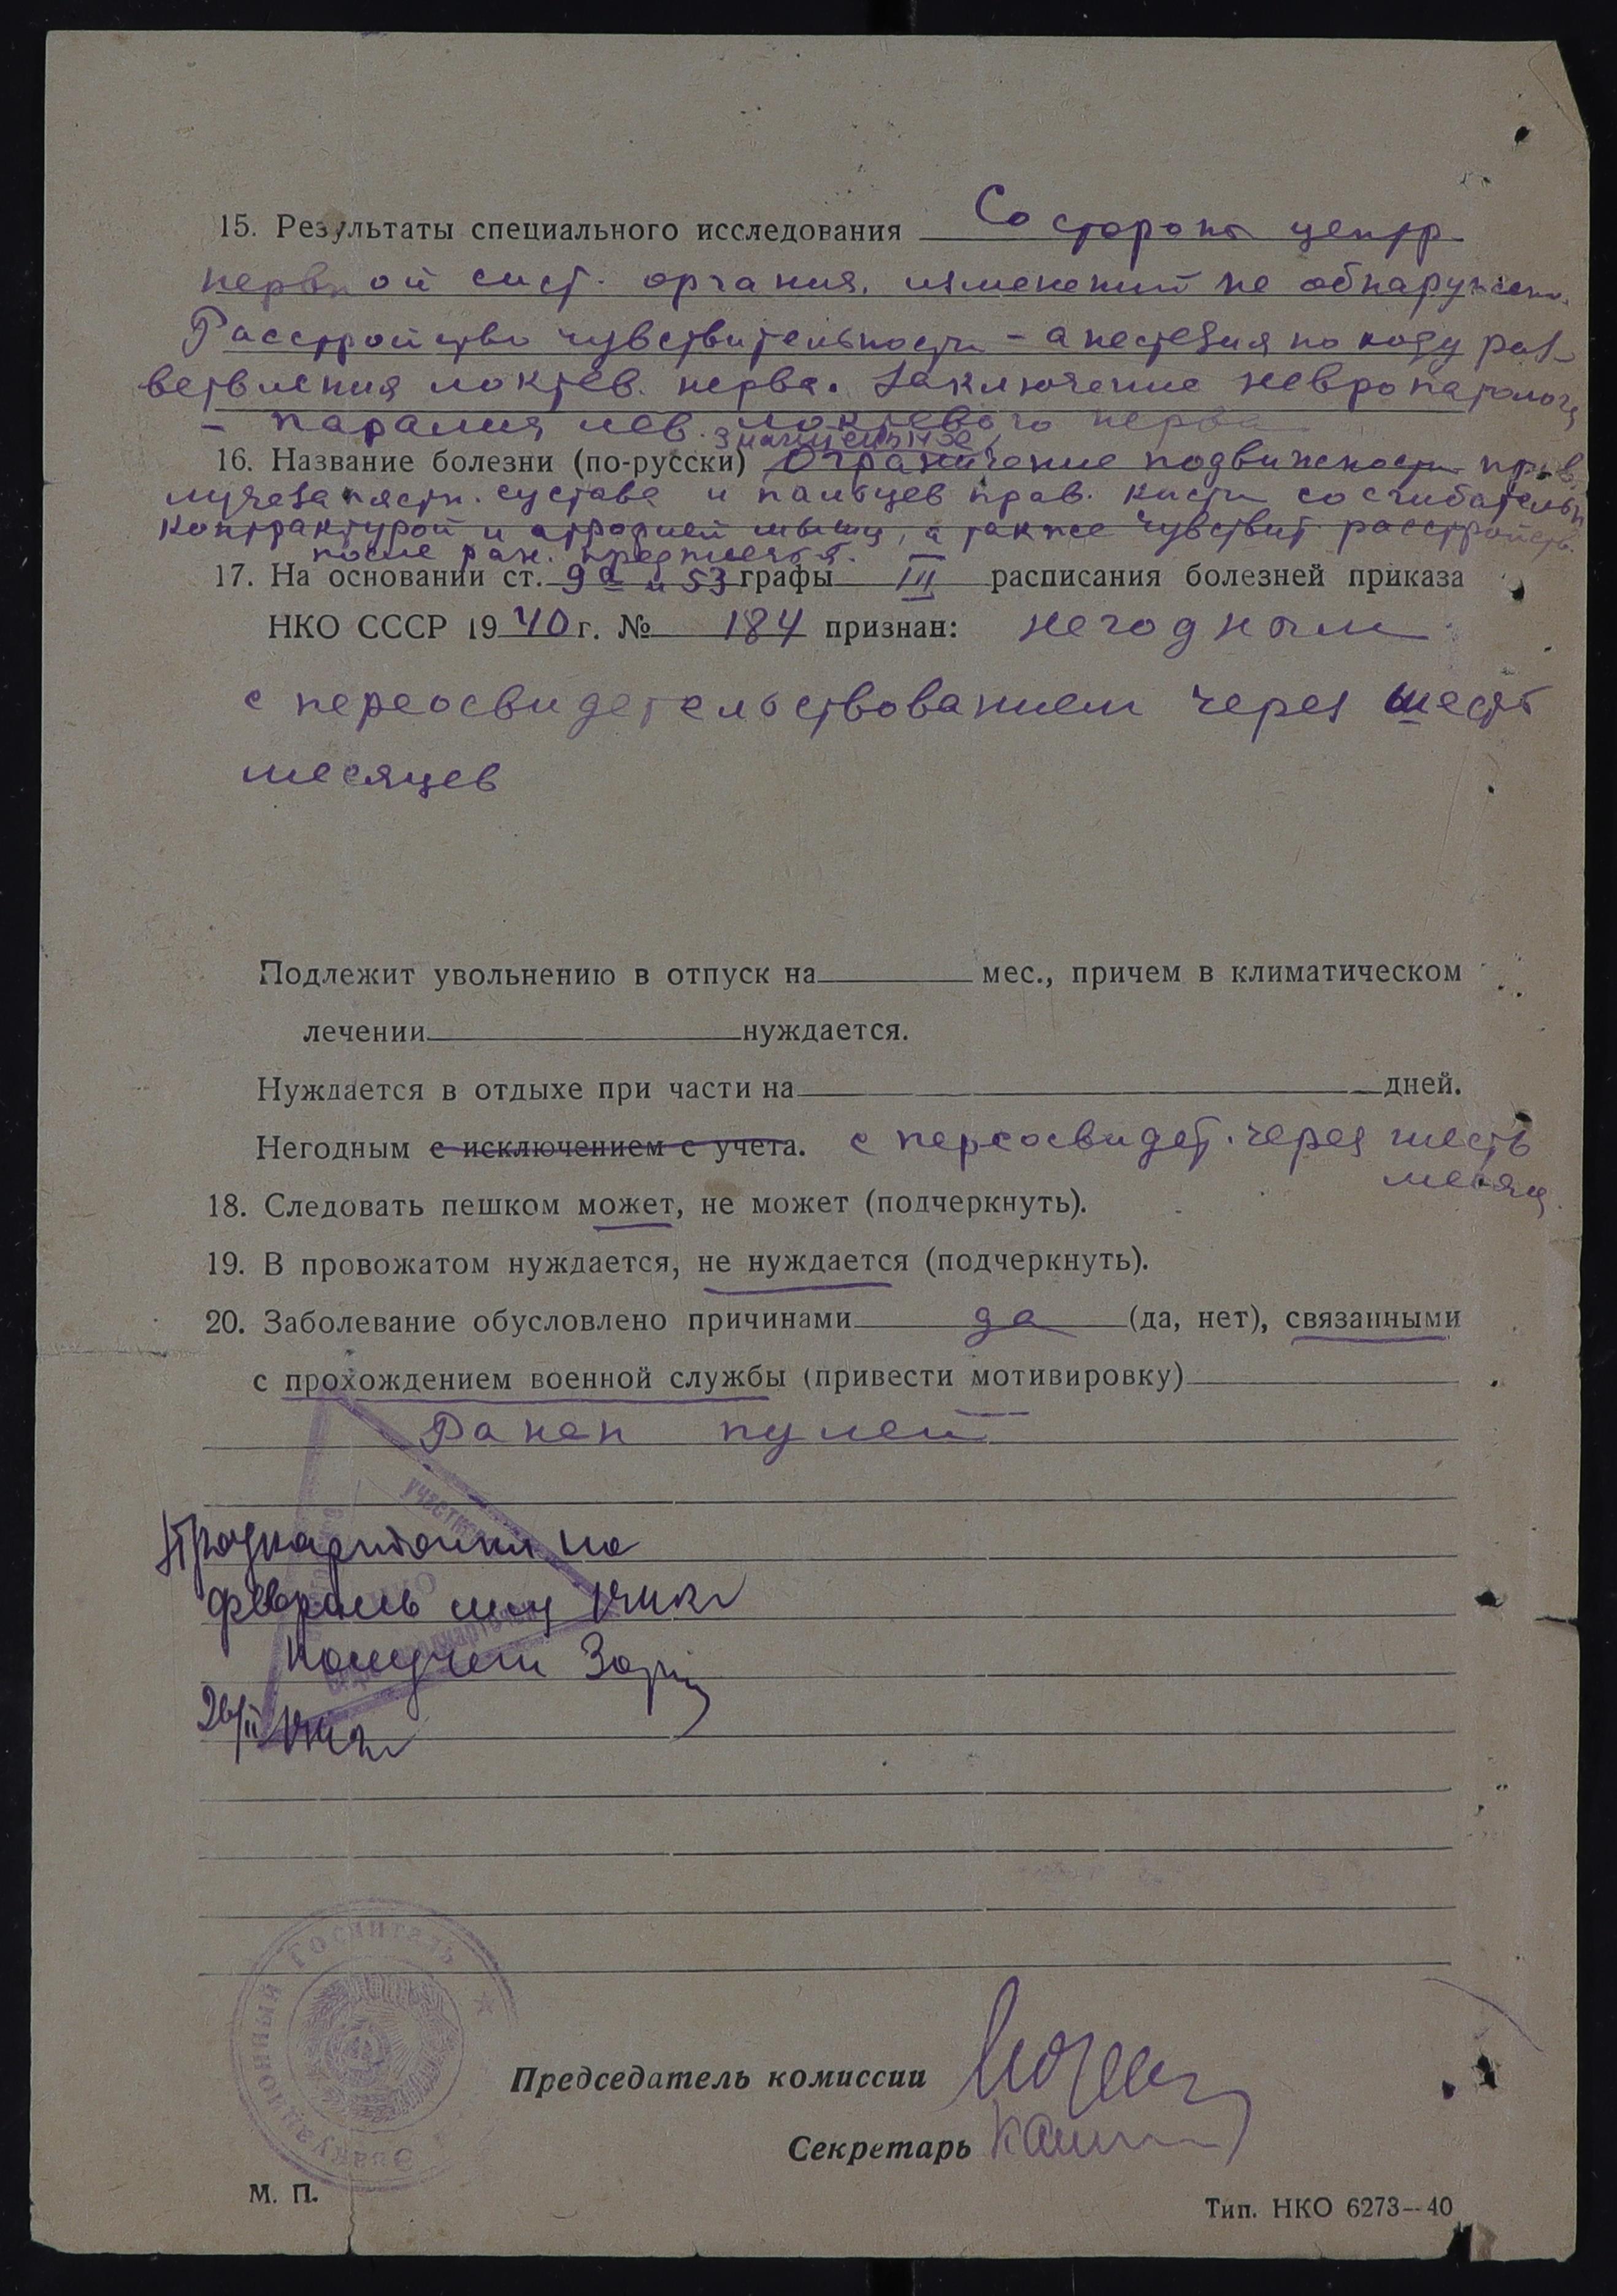 15. Результаты специального исследования Со стороны центр
нервной сист. органич. изменений не обнаружено.
Расстройство чувствительности - анестезия по ходу раз-
ветвления локтев. нерва. Заключение невропатолога
- паралич лев. локтевого нерва
значительное
16. Название болезни (по-русски) Ограничение подвижности прав.
лучезапястн. сустава и пальцев прав. кисти со сгибательн
контрактурой и атрофией мышц, а также чувствит. расстройств.
после ран. предплечья.
17. На основании ст. 9а и 53 графы III расписания болезней приказа
НКО СССР 1940 г. № 184 признан: негодным
с переосвидетельствованием через шесть
месяцев
Подлежит увольнению в отпуск на мес., причем в климатическом
лечении нуждается.
Нуждается в отдыхе при части на дней.
Негодным с исключением с учета. с переосвидет. через шесть
месяц.
18. Следовать пешком может, не может (подчеркнуть).
19. В провожатом нуждается, не нуждается (подчеркнуть).
20. Заболевание обусловлено причинами да (да, нет), связанными
с прохождением военной службы (привести мотивировку)
Ранен пулей
участко
Продкарточки на
февраль м-ц 1942
Получены
26/II 1942
Эвакуационный Госпиталь
Председатель комиссии
Секретарь
М. П.
Тип. НКО 6273—40